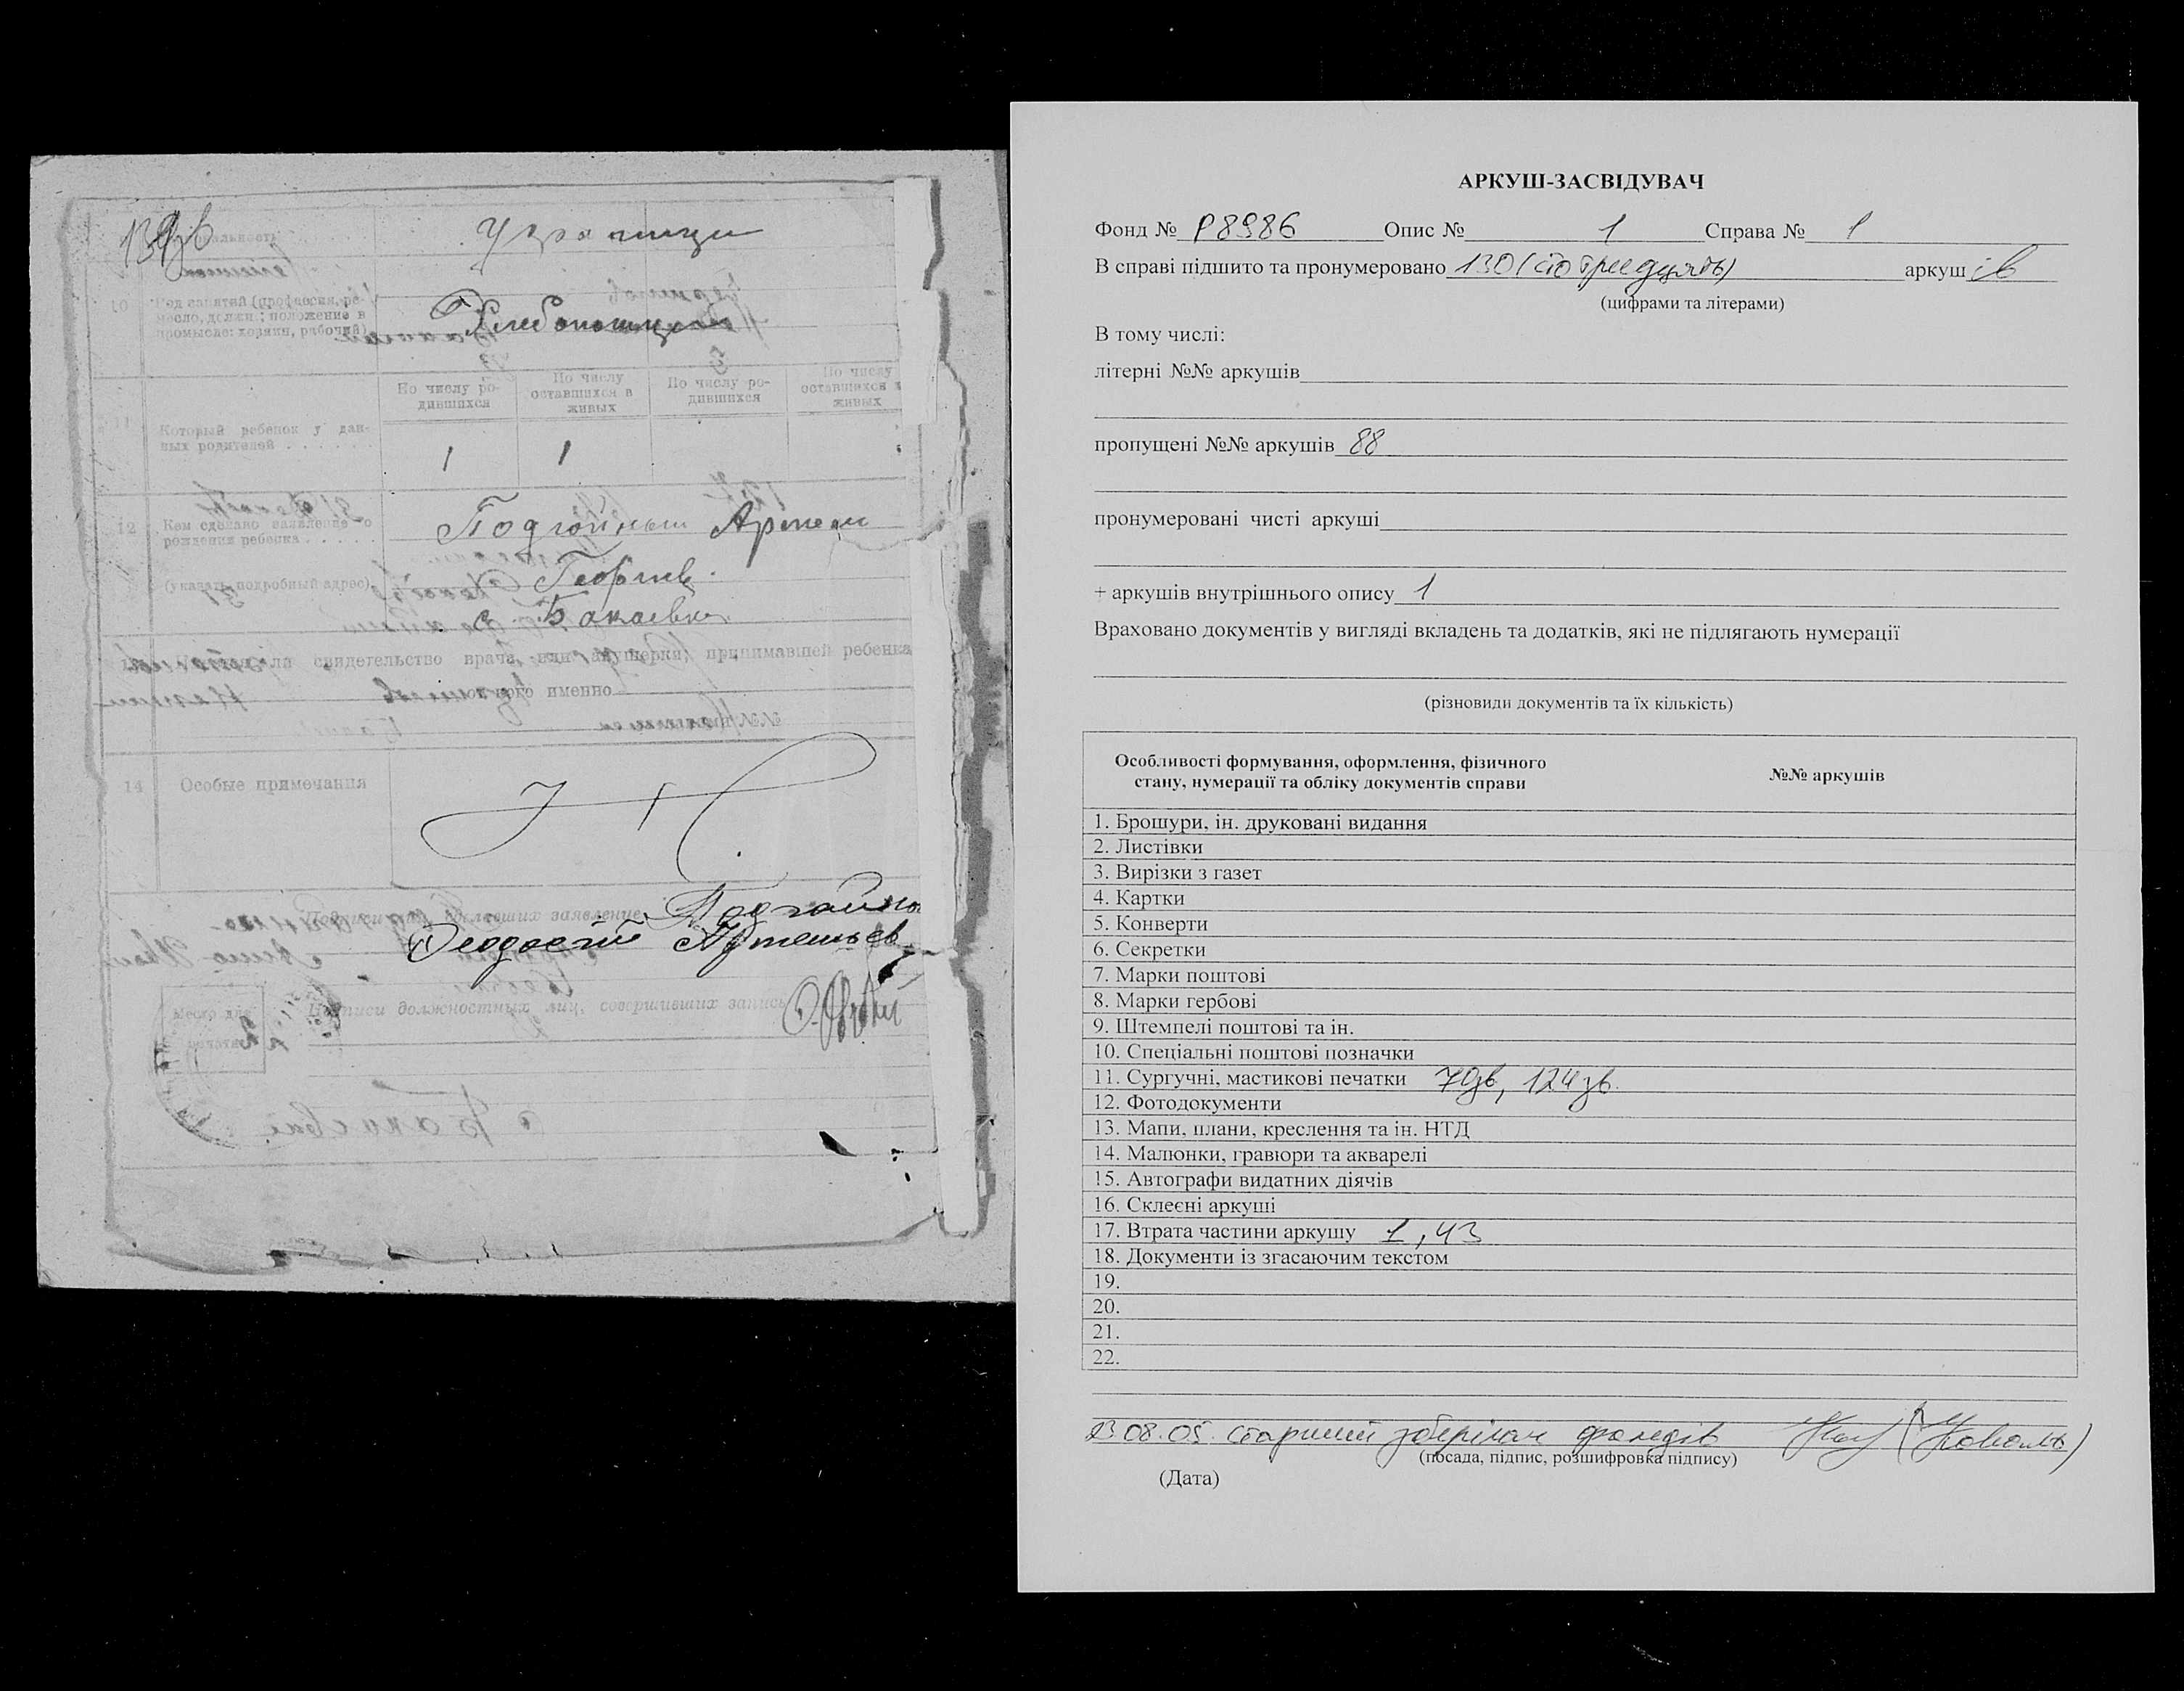 Украинци
10
Род занятий (профессия, ре-
месло, должн.; положение в
промысле: хозяин, рабочий)
Хлебопашцы
По числу ро-
дившихся
По числу
оставшихся в
живых
По числу ро-
дившихся
По числу
оставшихся в
живых
11
Который ребенок у дан-
ных родителей . . . . . .
1 1
12
Кем сделано заявление о
рождении ребенка . . . . .
(указать подробный адрес)
Подгойный Артем
Георгиев.
с. Бакаевка
свидетельство врача или акушерки, принимавшей ребенка
кого именно
14
Особые примечания
Подписи сделавших заявление
Подгайны
Феодосий Артемьев
Место для
печати
Подписи должностных лиц, совершивших запись
АРКУШ-ЗАСВІДУВАЧ
Фонд № Р8986 Опис № 1 Справа № 1
В справі підшито та пронумеровано 130 (сто тридцять) аркушів
(цифрами та літерами)
В тому числі:
літерні №№ аркушів
пропущені №№ аркушів 88
пронумеровані чисті аркуші
+ аркушів внутрішнього опису 1
Враховано документів у вигляді вкладень та додатків, які не підлягають нумерації
(різновиди документів та їх кількість)
Особливості формування, оформлення, фізичного
стану, нумерації та обліку документів справи
№№ аркушів
1. Брошури, ін. друковані видання
2. Листівки
3. Вирізки з газет
4. Картки
5. Конверти
6. Секретки
7. Марки поштові
8. Марки гербові
9. Штемпелі поштові та ін.
10. Спеціальні поштові позначки
11. Сургучні, мастикові печатки 70зв, 124зв.
12. Фотодокументи
13. Мапи, плани, креслення та ін. НТД
14. Малюнки, гравюри та акварелі
15. Автографи видатних діячів
16. Склеєні аркуші
17. Втрата частини аркушу 1, 43
18. Документи із згасаючим текстом
19.
20.
21.
22.
23.08.05. старший зберігач фондів (Коваль)
(посада, підпис, розшифровка підпису)
(Дата)